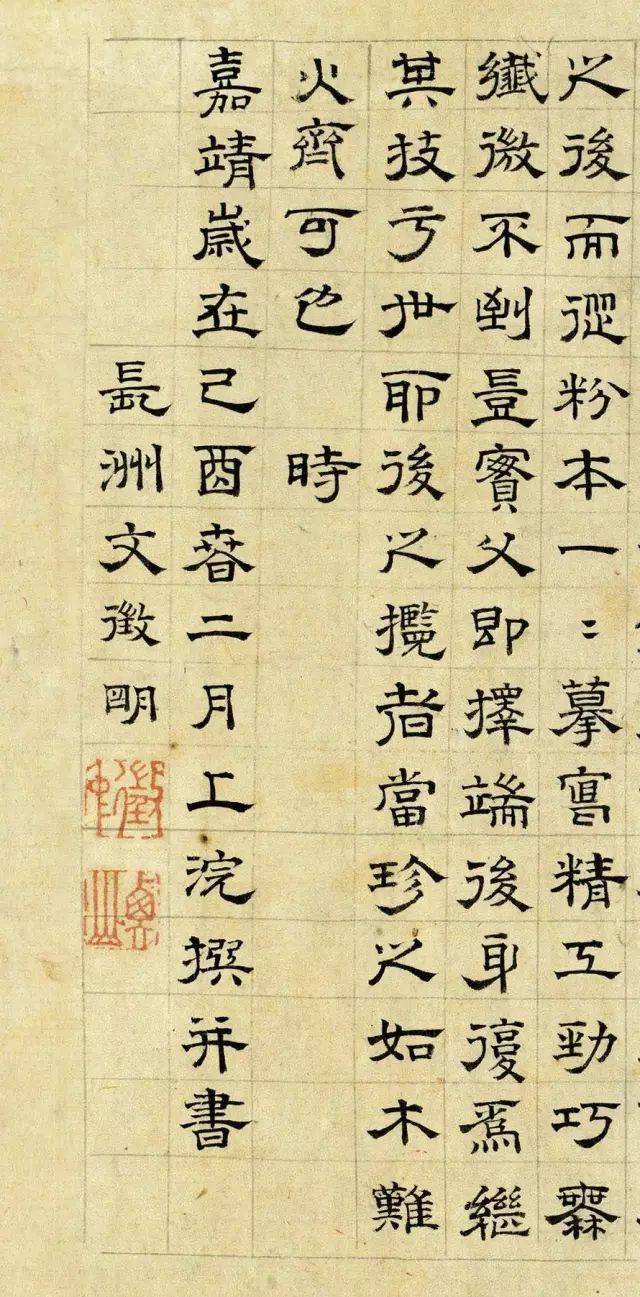 之後而從粉本一〻摹寫精工勁巧橆
纖微不到豈實父即擇端後身復爲繼
其技亏世耶後之擥者當珍之如木難
火齊可也　時
嘉靖歲在己酉春二月上浣撰并書
長洲文徵明
徵仲